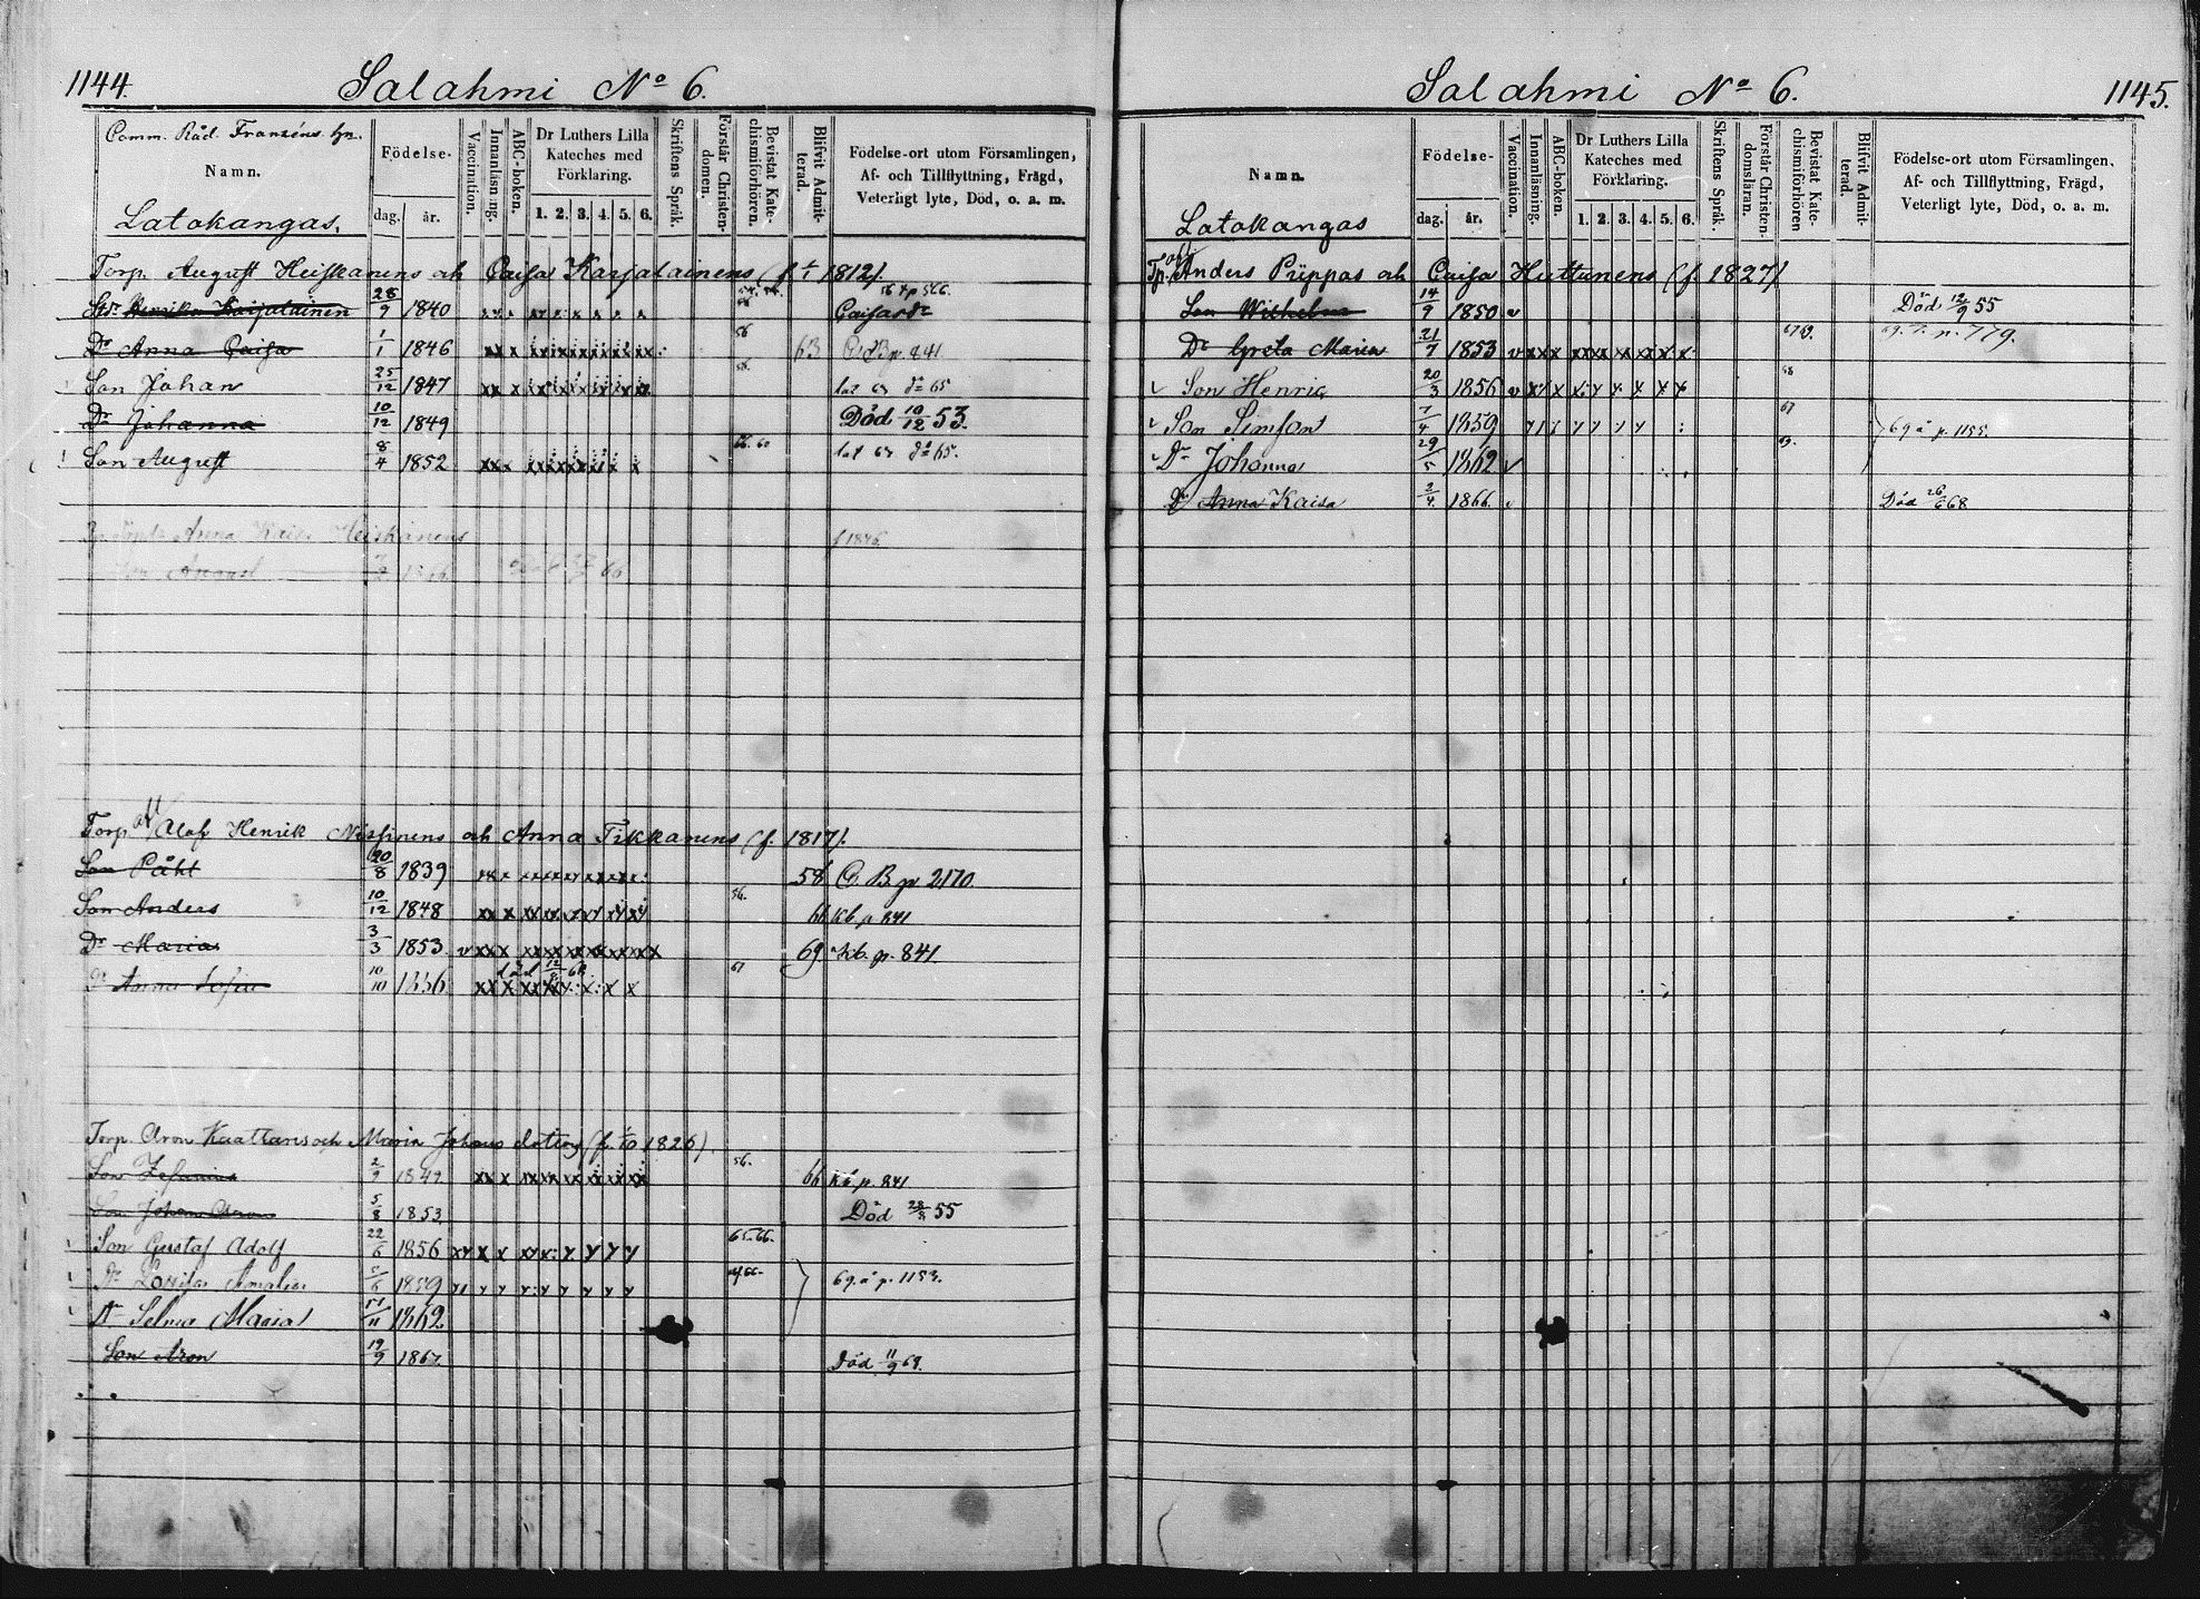 1144.
Salahmi No 6.
Comm. Råd. Franzéns hn.
Namn.
Latokangas.
Födelse-
dag. år.
Vaccination.
Innanläsning.
ABC-boken.
Dr Luthers Lilla Kateches med Förklaring.
1. 2. 3. 4. 5. 6.
Skriftens Språk.
Förstår Christen-domen.
Bevistat Kate-chismiförhören.
Blifvit Admit-terad.
Födelse-ort utom Församlingen,
Af- och Tillflyttning, Frägd,
Veterligt lyte, Död, o. a. m.
Torp. August Heiskanens och Caisa Karjalainens (f. 1/1 1812).
Henrika Karjalainen 28/9 1840
Dr Anna Caisa 1/1 1846 63 C. B. p. 841
Son Johan 25/12 1847 65
Dr Johanna 10/12 1849 Död 10/12 53.
Son August 8/4 1852 65.
Anna Kaisa Heiskanens f 1846
Torp. Olof Henrik Nissinens och Anna Tikkanens (f. 1817).
Son Påhl 20/8 1839 58 C. B. p 2170.
Son Anders 10/12 1848 56. 66 Kb. p 841
Dr Maria 3/3 1853 v 69 Kb. p. 841.
död 12/8 68
Dr Anna Sofia 10/10 1856 67
Torp. Aron Kaattaris och Maria Johansdotters (f. 1/10 1826).
Son Zefanias 2/9 1849 56. 66 Kb p. 841
Son Johan Aron 5/8 1853 Död 28/8 55
Son Gustaf Adolf 22/6 1856 65. 66.
Dr Lovisa Amalia 1859 69. å p. 1153.
Dr Selma Maria 1862
Son Aron 19/9 1867 Död 11/9 68.
Salahmi No 6.
1145.
Namn.
Latokangas
Födelse-
dag. år.
Vaccination.
Innanläsning.
ABC-boken.
Dr Luthers Lilla Kateches med Förklaring.
1. 2. 3. 4. 5. 6.
Skriftens Språk.
Förstår Christen-domsläran.
Bevistat Kate-chismiförhören
Blifvit Admit-terad.
Födelse-ort utom Församlingen,
Af- och Tillflyttning, Frägd,
Veterligt lyte, Död, o. a. m.
Anders Piippas och Caisa Huttunens (f. 1827)
Son Wilhelm 14/9 1850 v Död 12/9 55
Dr Greta Maria 21/7 1853 v p. 779.
Son Henric 20/3 1856 v 68
Son Simson 7/4 1859 67 69 å p. 1155.
Dr Johanna 29/5 1862 v
Dr Anna Kaisa 2/4 1866. v Död 26/6 68